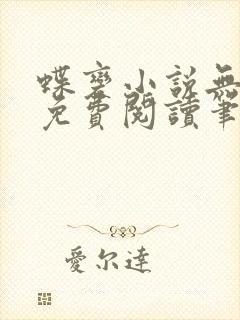 蝶變小說無
免費閱讀筆
愛尔達